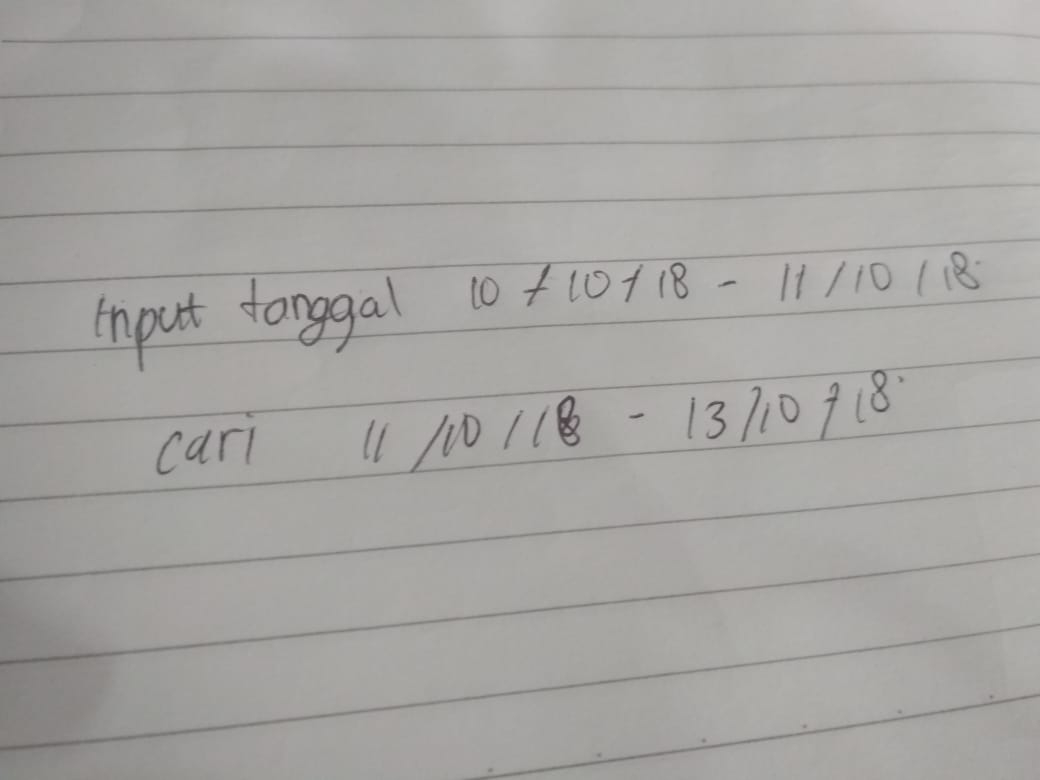 Input tanggal 10/10/18 - 11/10/18
cari 11/10/18 - 13/10/18